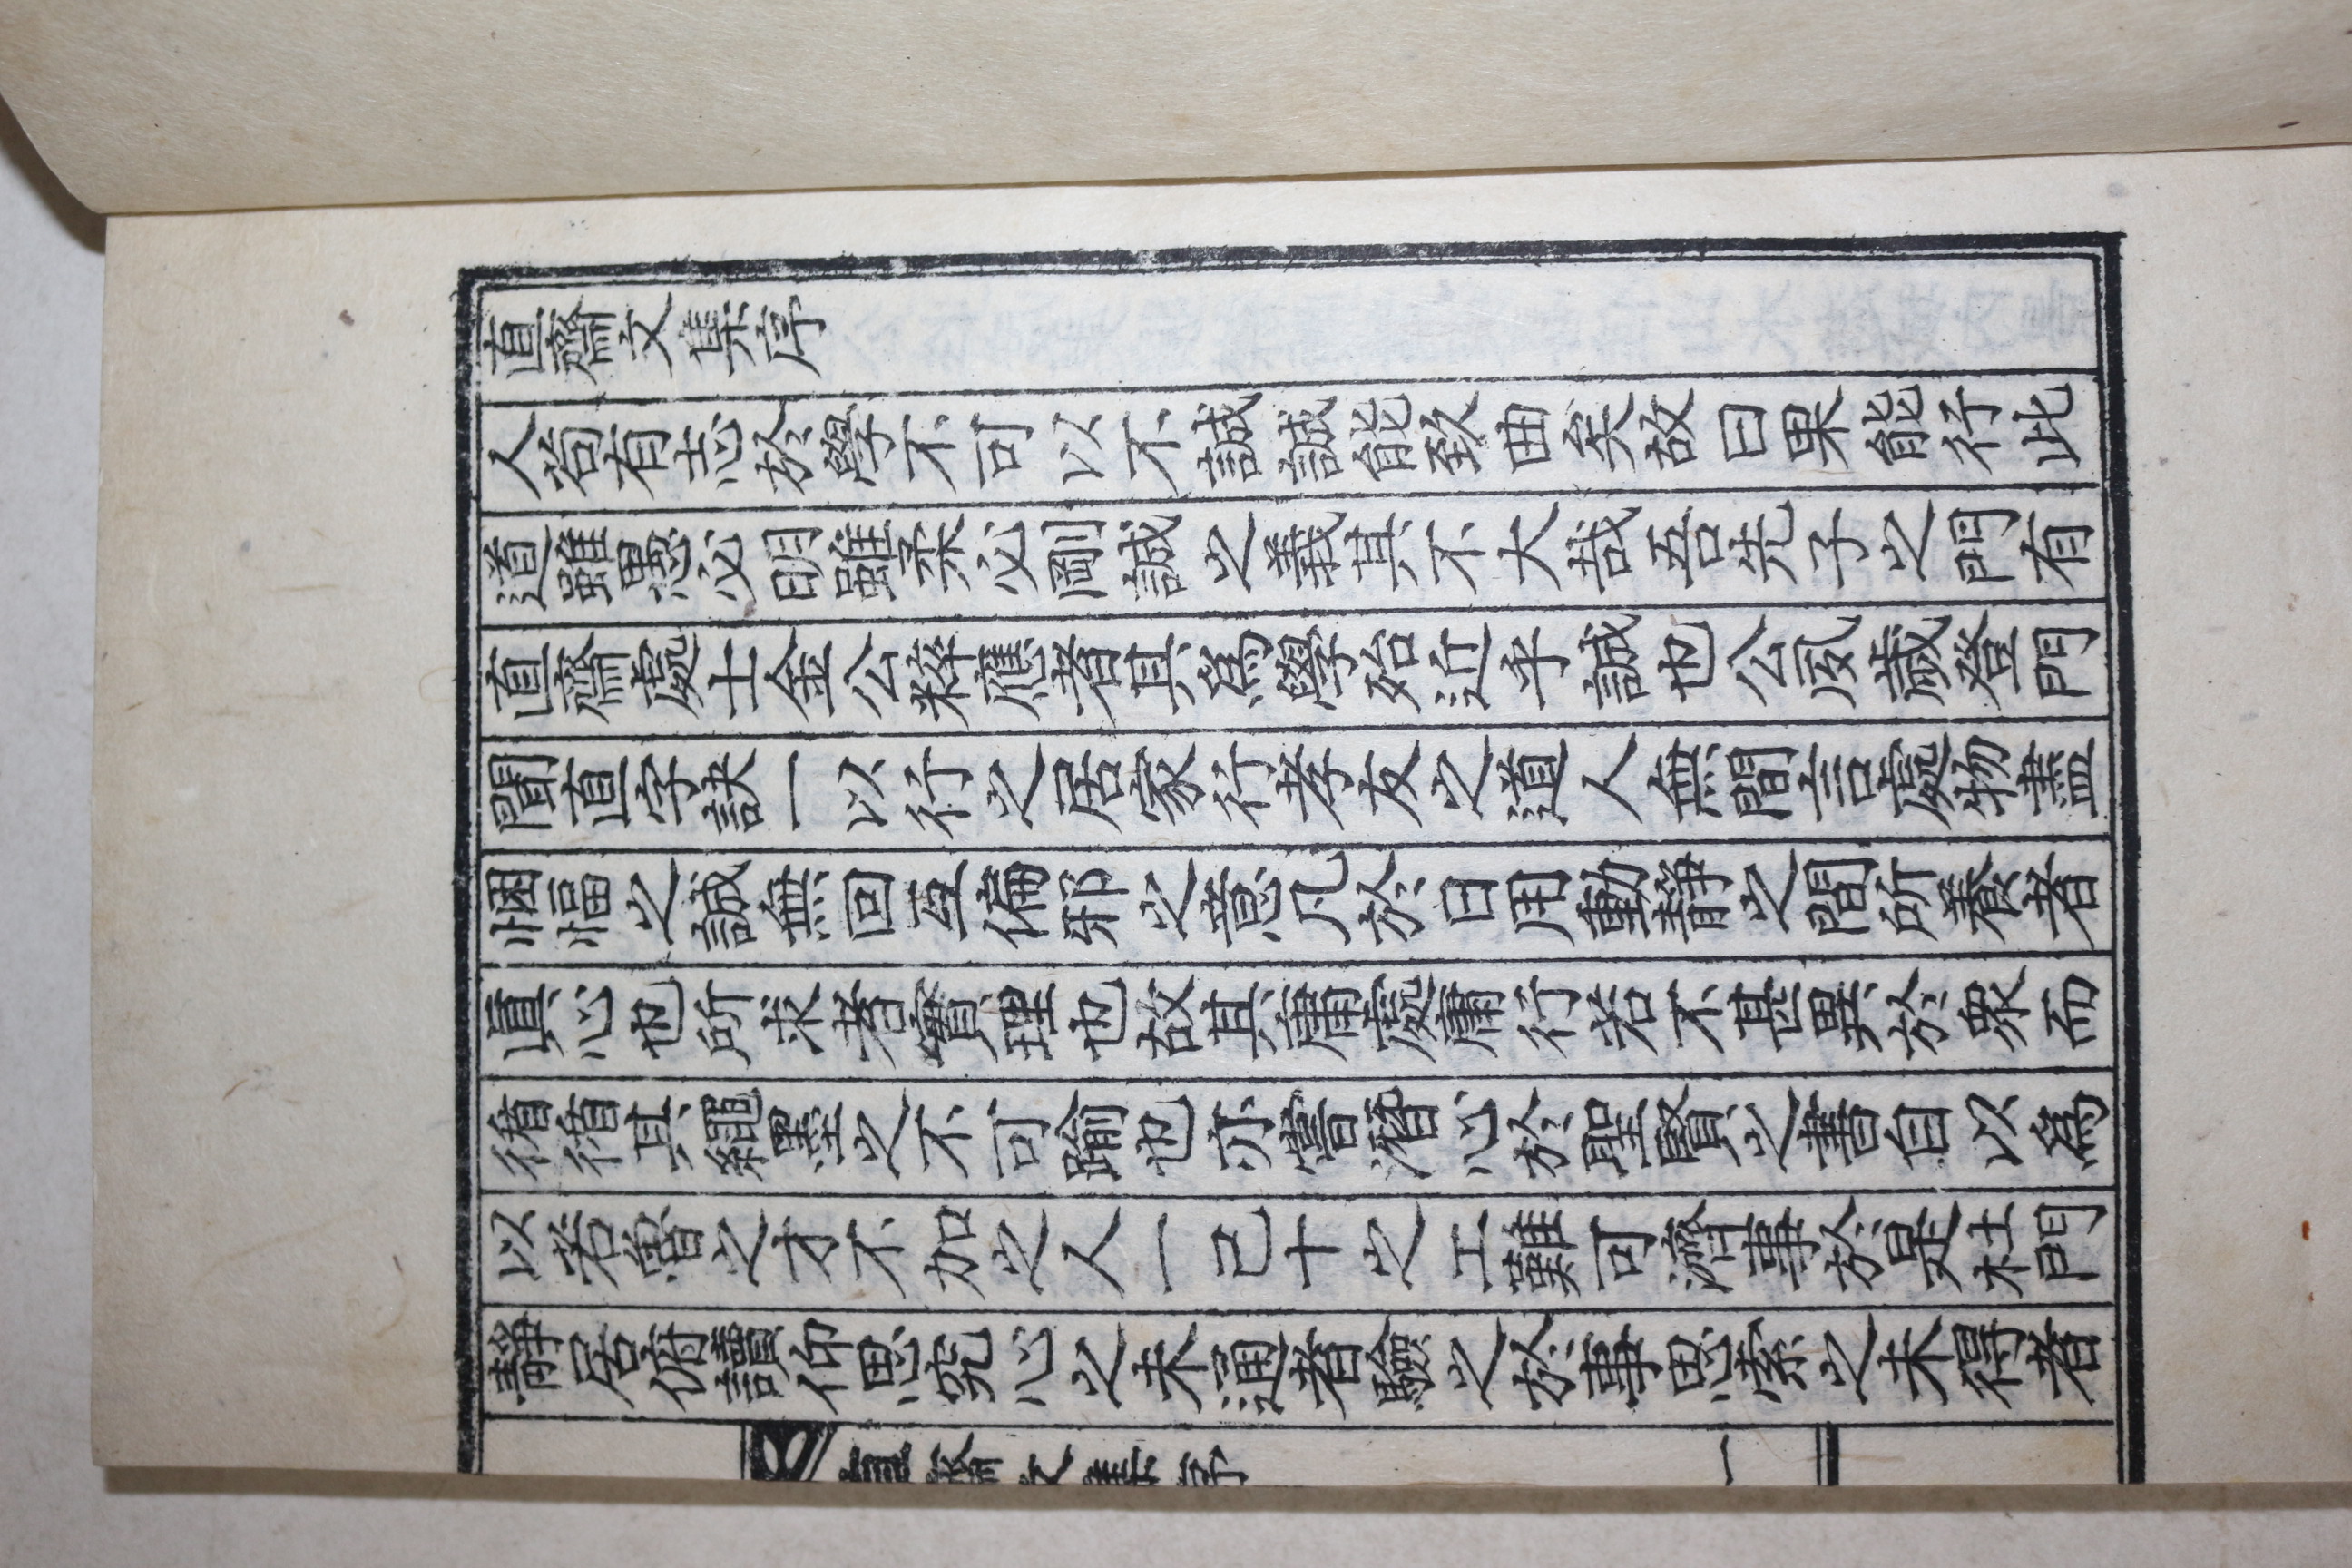 直齋文集序
人苟有志於學不可以不誠誠能致曲矣故曰果能行此
道雖愚必明雖柔必剛誠之義其不大哉吾先子之門有
直齋處士金公粹應者其爲學殆近乎誠也公夙歲登門
聞直字訣一以行之居家行孝友之道人無間言處物盡
悃愊之誠無回互偏邪之意凡於日用動靜之間所養者
眞心也所求者實理也故其庸處庸行若不甚異於衆而
循循其繩墨之不可踰也亦嘗潛心於聖賢之書自以爲
以若魯之才不加之人一己十之工難可濟事於是杜門
靜居俯讀仰思究心之未通者驗之於事思索之未得者
直齋文集序 一